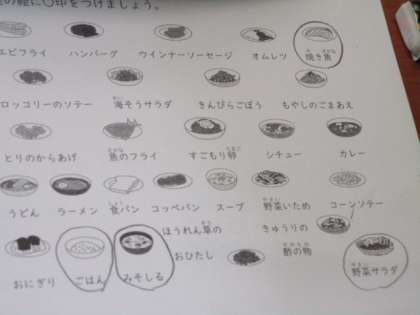 の絵に○印をつけましょう。
エビフライ ハンバーグ ウインナーソーセージ オムレツ 焼き魚
ロッコリーのソテー 海そうサラダ きんぴらごぼう もやしのごまあえ
とりのからあげ 魚のフライ すごもり卵 シチュー カレー
うどん ラーメン 食パン コッペパン スープ 野菜いため コーンソテー
おにぎり ごはん みそしる ほうれん草の おひたし きゅうりの 酢の物 野菜サラダ